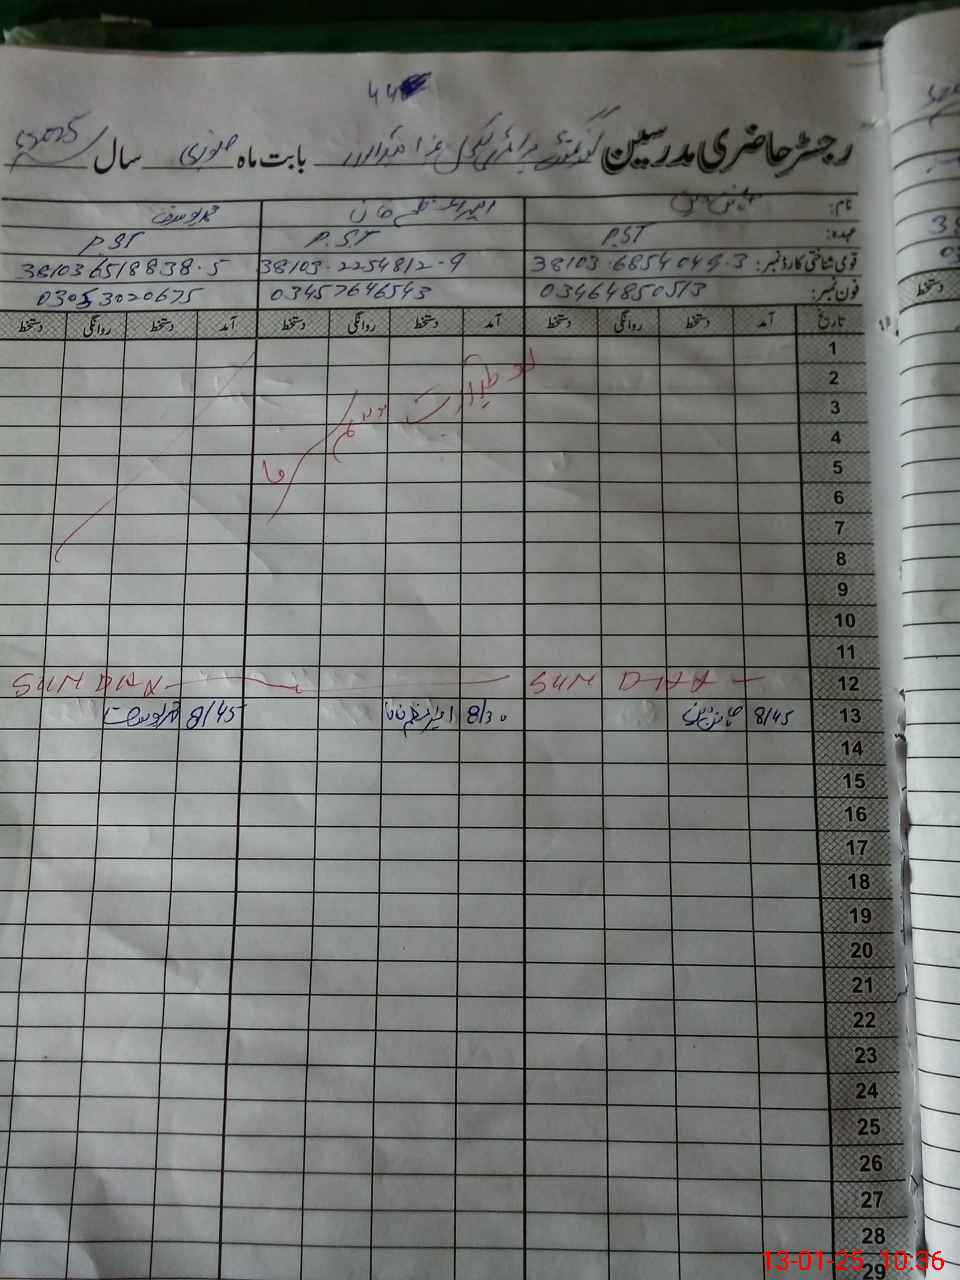 44
رجسٹر حاضری مدرسین گورنمنٹ پرائمری بابت ماہ جنوری سال 2025
نام: امیر اعظم خان محمد یوسف
عہدہ: PST P.S.T P.ST
قومی شناختی کارڈ نمبر: 38103-6854049-3 38103-2254812-9 381036518838-5
فون نمبر: 03464850513 03457646543 03053020675
تاریخ آمد دستخط روانگی دستخط آمد دستخط روانگی دستخط آمد دستخط روانگی دستخط
1
2
3
4
5
6
7
8
9
10
11
12 SUN DAY SUN DAY
13 8/45 8/30 امیر اعظم خان 8/45 محمد یوسف
14
15
16
17
18
19
20
21
22
23
24
25
26
27
28
29
13-01-25 10:36